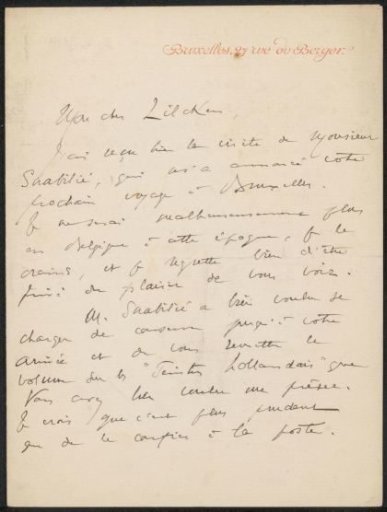 Bruxelles, 27 rue du Berger
Mon cher Zilcken,
J'ai reçu hier la visite de Monsieur
Saabilié, qui m'a annoncé votre
prochain voyage à Bruxelles.
Je ne serai malheureusement plus
en Belgique à cette époque, je le
crains, et je regrette bien d'être
privé du plaisir de vous voir.
M. Saabilié a bien voulu se
charger de conserver jusqu'à votre
arrivée et de vous remettre le
volume sur les "Peintres hollandais" que
vous avez bien voulu me prêter.
Je crois que c'est plus prudent
que de le confier à la poste.